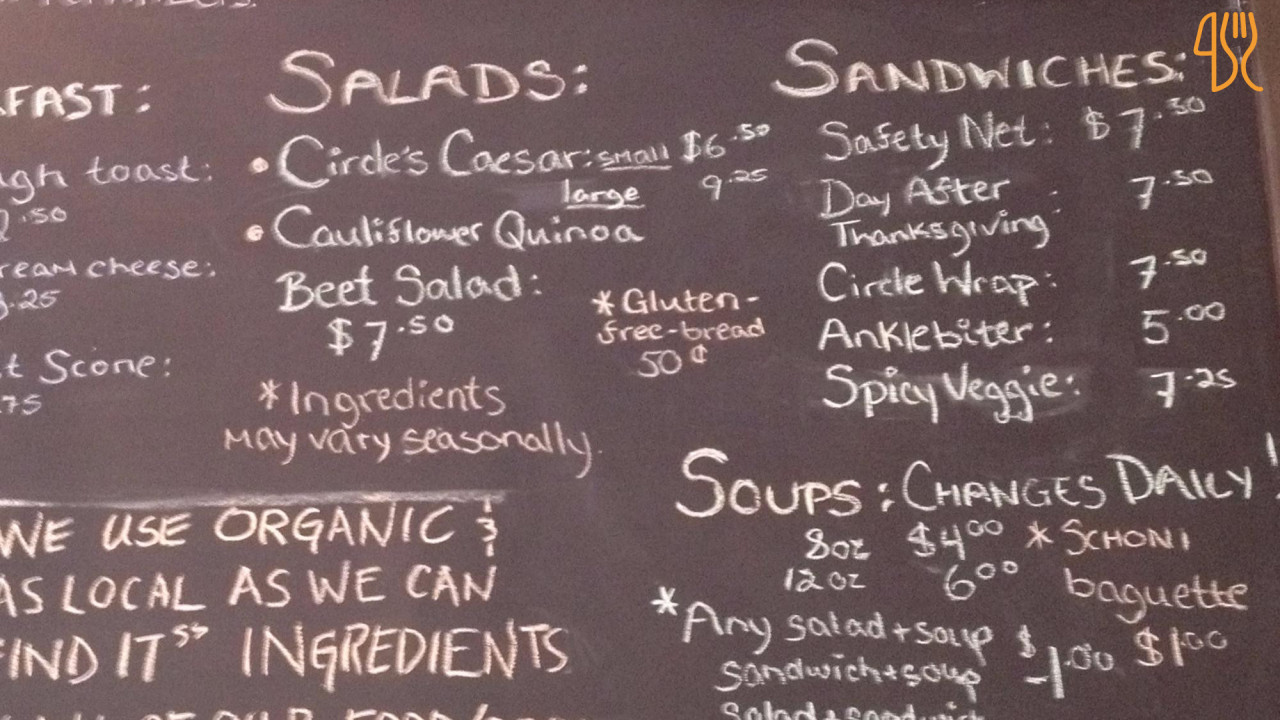 FAST:
gh toast:
.50
ream cheese:
.25
t Scone:
75
SALADS:
• Circle's Caesar: small $6.50
large 9.25
• Cauliflower Quinoa
Beet Salad:
$7.50
*Gluten-
free-bread
50¢
*Ingredients
may vary seasonally.
SANDWICHES:
Safety Net: $7.50
Day After : 7.50
Thanksgiving
Circle Wrap: 7.50
Anklebiter: 5.00
Spicy Veggie: 7.25
SOUPS: CHANGES DAILY!
8oz $4.00
12oz 6.00
* SCHONI
baguette
$1.00
*Any salad+soup $
sandwich+soup -1.00
salad+sandwich
WE USE ORGANIC &
AS LOCAL AS WE CAN
FIND IT INGREDIENTS